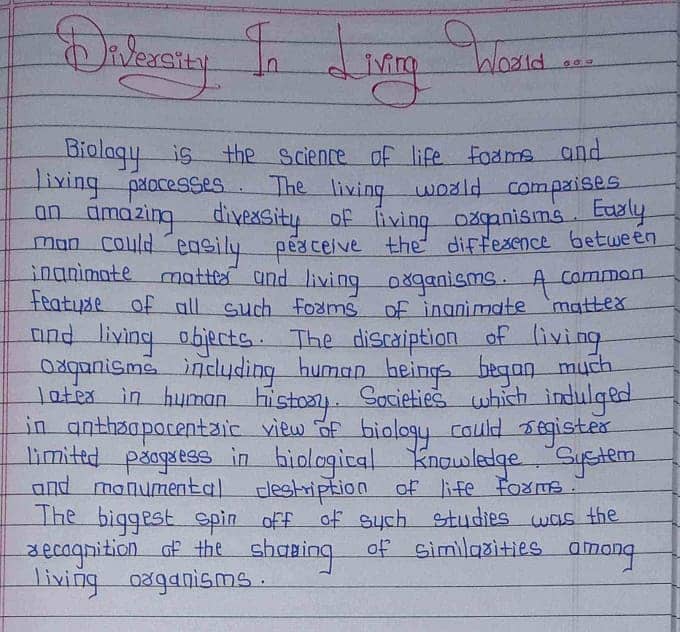 Diversity In Living World ...
Biology is the science of life forms and
living processes. The living world comprises
an amazing diversity of living organisms. Early
man could easily perceive the difference between
inanimate matter and living organisms. A common
feature of all such forms of inanimate matter
and living objects. The discription of living
organisms including human beings began much
later in human history. Societies which indulged
in anthropocentric view of biology could register
limited progress in biological knowledge. System
and monumental description of life forms.
The biggest spin off of such studies was the
recognition of the sharing of similarities among
living organisms.